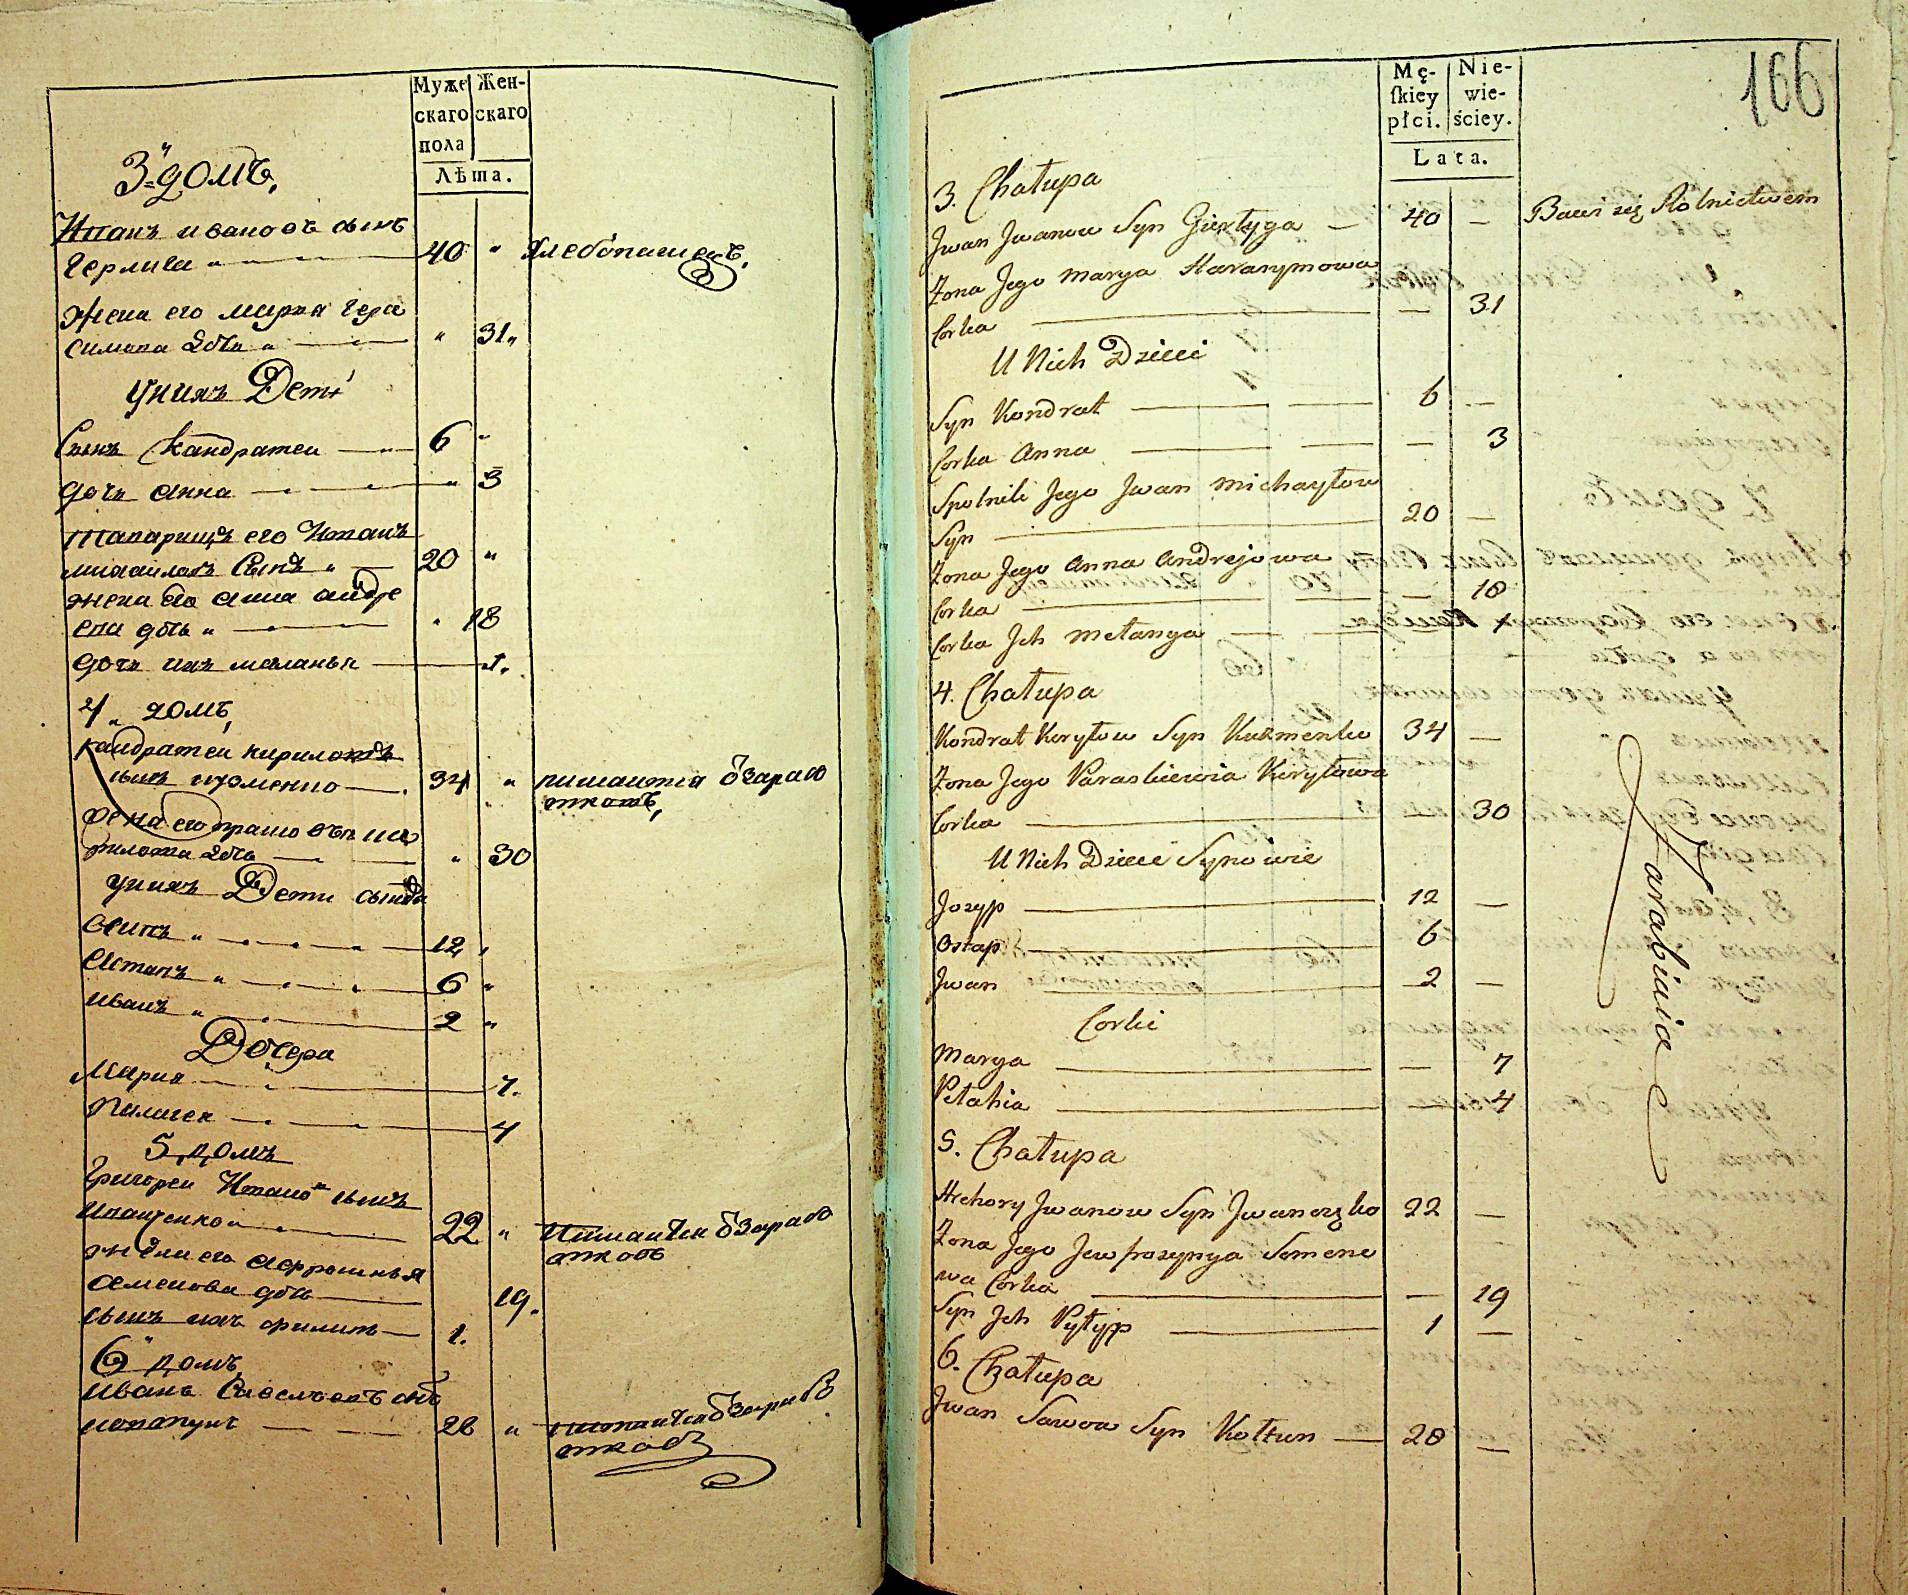 Муже
скаго
пола
Жен-
скаго
Лѣта.
3 домъ,
Иванъ ивановъ сынъ
герлига 40 " Хлебопашецъ,
Жена его мария гера
симова дочь " 31 "
у нихъ Дети
Сынъ Кандратеи 6 "
дочь анна " 3
Тапарищъ его Иванъ
михаиловъ Сынъ " 20 "
жена его анна андре
ева дочь " " 18
дочь ихъ маланья 1.
4 " домъ,
кандратеи кириловъ
сынъ кузменко 34 " питаитса бзараб
откомъ,
Жена его прасковья ки
рилова дочь " 30
у нихъ Дети сынова
Осипъ " 12 "
Астапъ " 6 "
иванъ " 2 "
Дочера
Мария 7.
Пилагея 4
5 домъ
Григореи Ивановъ сынъ
иващенко 22 " Питаитса бзараб
откомъ
жена его афросинья
семенова дочь 19.
сынъ ихъ филипъ 1.
6 " домъ
иванъ Савельевъ снъ
колтунъ 28 " питаитса бзараб
откомъ
166
Mę-
ſkiey
płci.
Nie-
wie-
ściey.
Lata.
3. Chałupa
Jwan Jwanow Syn Gierłyga — 40 — Bawi się Rolnictwem
Żona Jego Marya Harasymowa
Corka — 31
U Nich Dzieci
Syn Kondrat 6 —
Corka Anna — 3
Spolnik Jego Jwan Michayłow
Syn 20 —
Żona Jego Anna Andrejowa
Corka — 18
Corka Jch Mełanya 1
4. Chałupa
Kondrat Kiryłow Syn Kuzmenko 34 —
Żona Jego Paraskiewia Kiryłowa
Corka — 30
U Nich Dzieci Synowie
Jozyp 12 —
Ostap 6
Jwan 2 —
Corki
Marya — 7
Pełahia — 4
Zarabiaia
5. Chałupa
Hrehory Jwanow Syn Jwaneczko 22 —
Żona Jego Jewfrozynya Semene
wa Corka — 19
Syn Jch Pyłyp 1 —
6. Chałupa
Jwan Sawow Syn Kołtun — 28 —